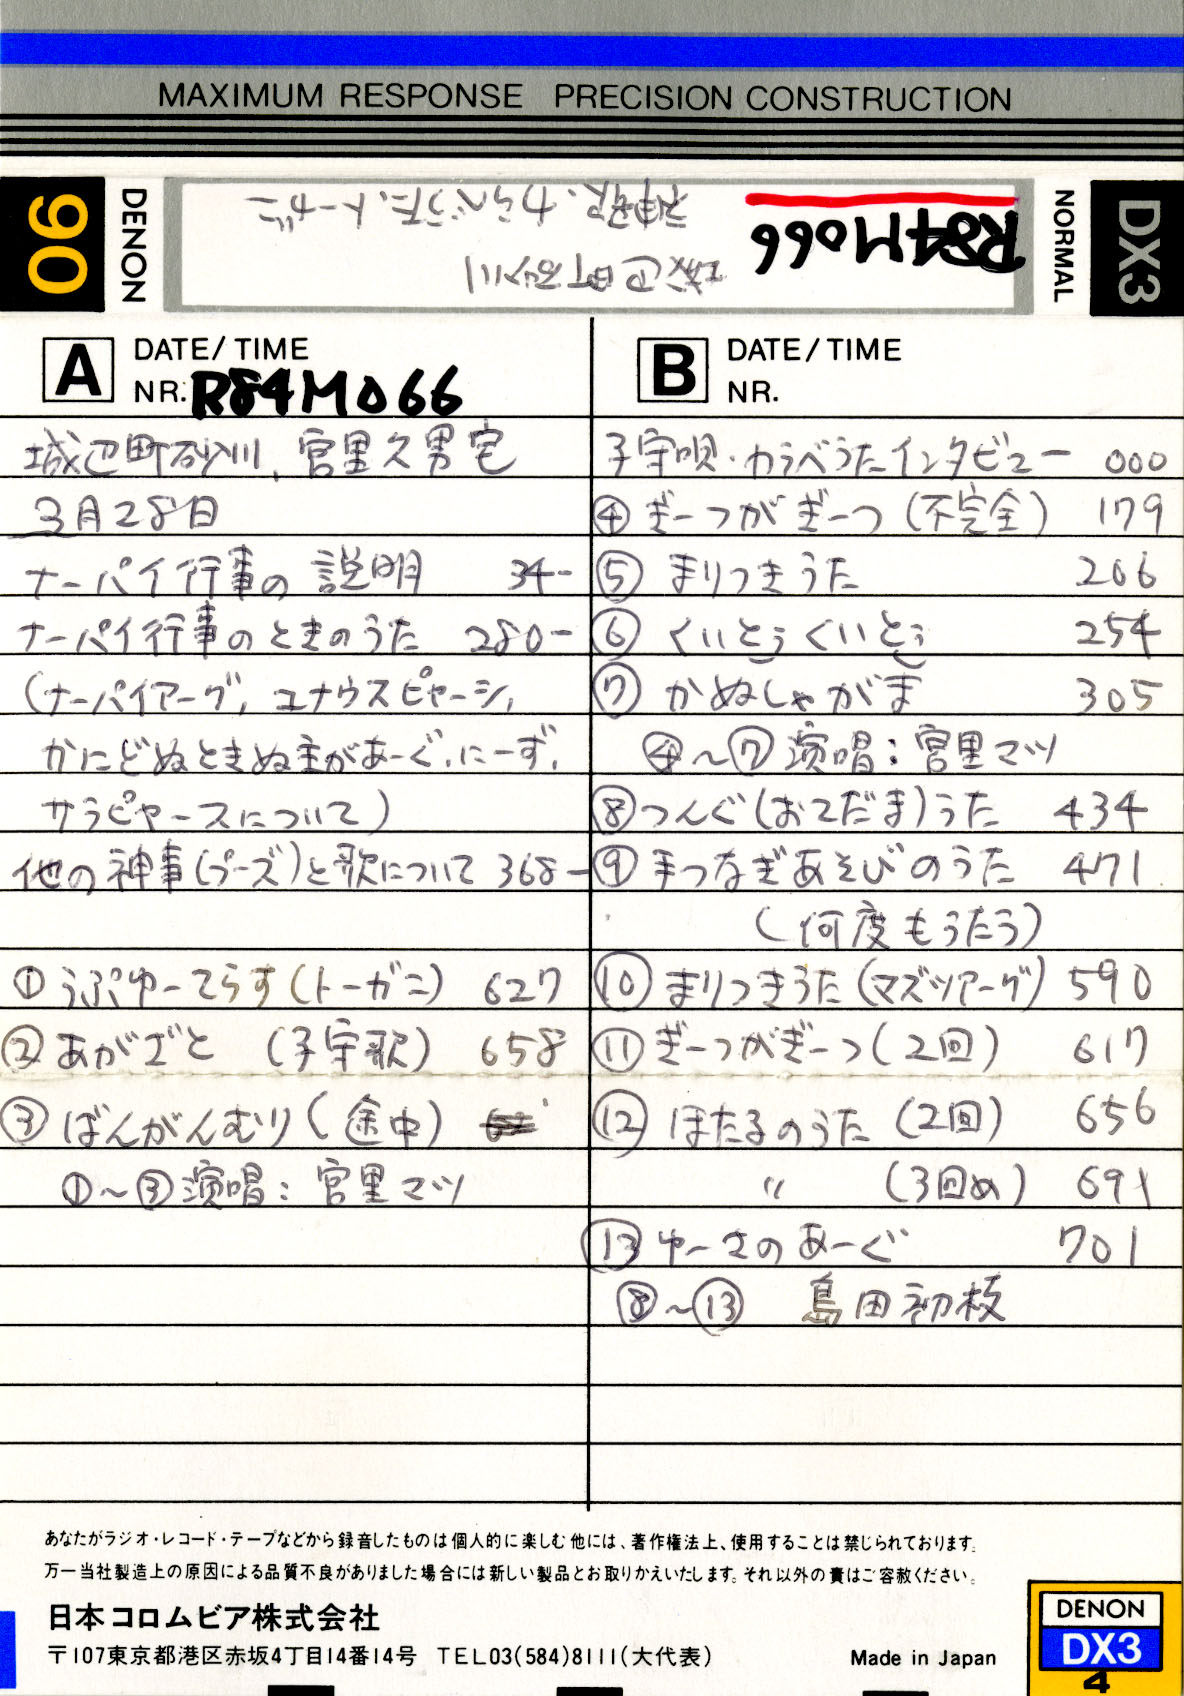 MAXIMUM RESPONSE PRECISION CONSTRUCTION
90
DENON
城辺町砂川
神歌、わらべうた、トーガニ
R84M066
NORMAL
DX3
A DATE/TIME
NR. R84M066
城辺町砂川、宮里久男宅
3月28日
ナーパイ行事の説明 34-
ナーパイ行事のときのうた 280-
(ナーパイアーグ, ユナウスピャーシ,
かにどぬときぬ主があーぐ, にーず,
サラピャースについて)
他の神事(プーズ)と歌について 368-
① うぷゆーてらす(トーガニ) 627
② あがざと (子守歌) 658
③ ばんがんむり(途中)
①~③演唱: 宮里マツ
B DATE/TIME
NR.
子守唄・わらべうたインタビュー 000
④ ぎーつがぎーつ (不完全) 179
⑤ まりつきうた 206
⑥ くいとぅくいとぅ 254
⑦ かぬしゃがま 305
④~⑦演唱: 宮里マツ
⑧ つんぐ(おてだま)うた 434
⑨ 手つなぎあそびのうた 471
(何度もうたう)
⑩ まりつきうた(マズツアーグ) 590
⑪ ぎーつがぎーつ(2回) 617
⑫ ほたるのうた (2回) 656
〃 (3回め) 691
⑬ ゆーさのあーぐ 701
⑧~⑬ 島田初枝
あなたがラジオ・レコード・テープなどから録音したものは個人的に楽しむ他には、著作権法上、使用することは禁じられております。
万一当社製造上の原因による品質不良がありました場合には新しい製品とお取りかえいたします。それ以外の責はご容赦ください。
日本コロムビア株式会社
〒107東京都港区赤坂4丁目14番14号 TEL03(584)8111(大代表)
Made in Japan
DENON
DX3
4